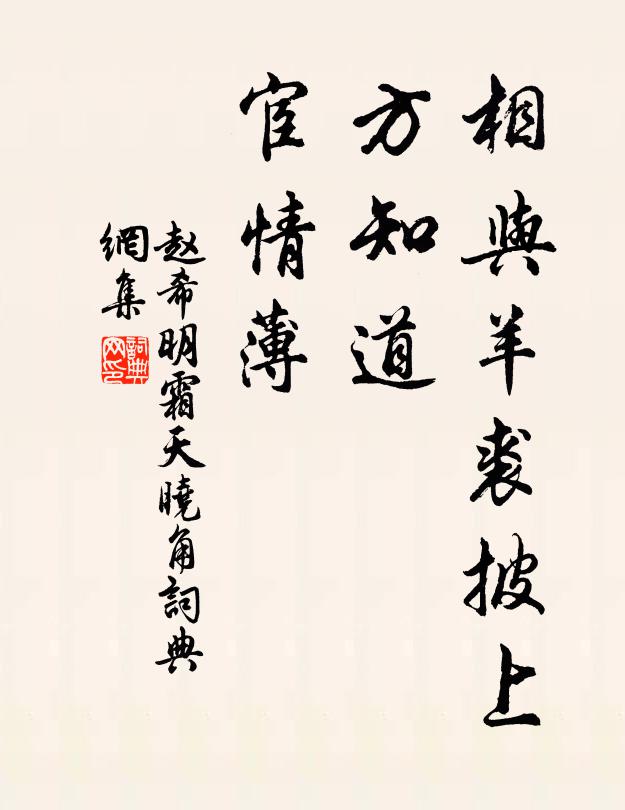 相與羊裘披上
方知道
宦情薄
赵希明霜天曉角詞典
網集
詞典网印